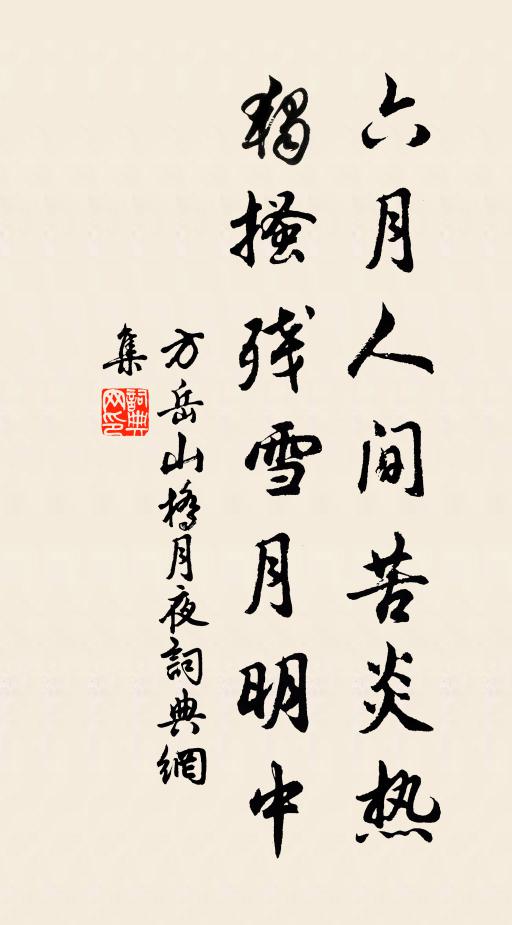 六月人间苦炎热
独搔残雪月明中
方岳山橋月夜詞典網
集
詞典
网印